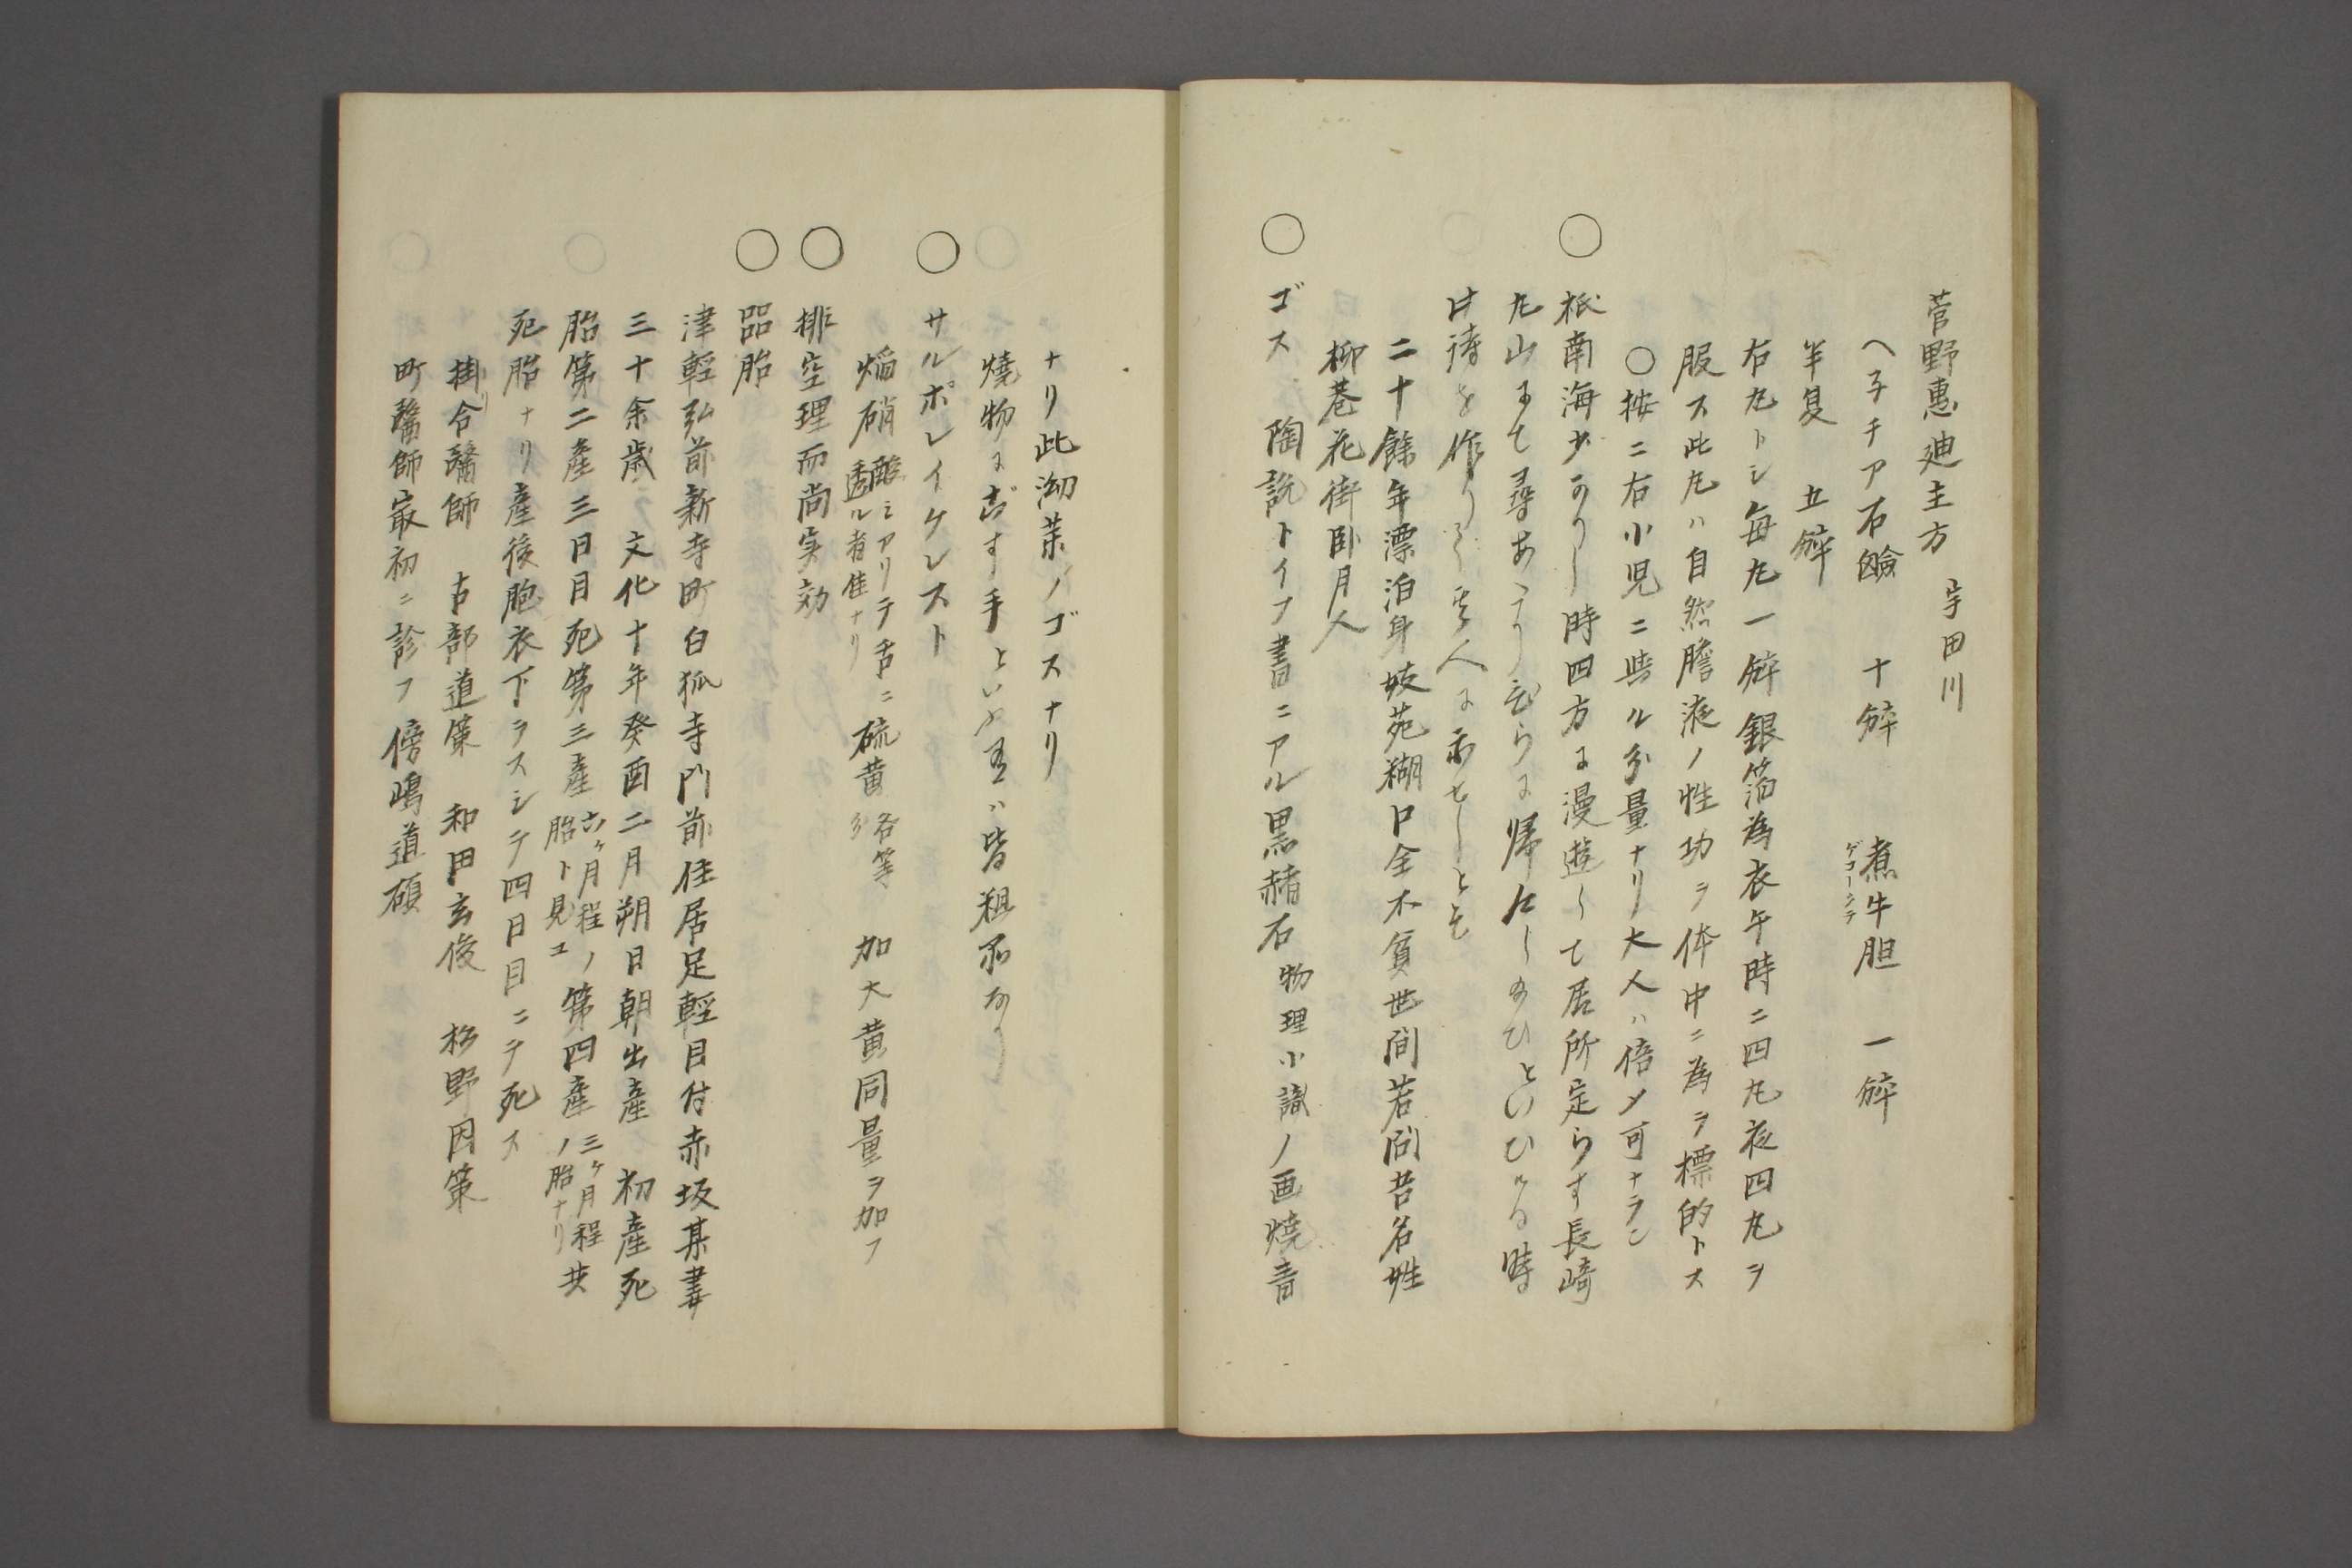 菅野惠廸主方　宇田川
ヘ子チア石鹼　十錊　煮牛胆　一錊
ゲコークテ
半夏　五錊
右丸トシ毎丸一錊銀箔為衣午時ニ四丸夜四丸ヲ
服ス此丸ハ自然膽液ノ性功ヲ体中ニ為ヲ標的トス
○按ニ右小児ニ與ル分量ナリ大人ハ倍メ可ナラン
○祇南海少かりし時四方に漫遊して居所定らす長崎
丸山にて尋あへり
帰
といひける時
此詩を作りて其人に示せしとそ
二十餘年漂泊身妓苑糊口全不貧世間若問吾名姓
柳巷花街臥月人
○ゴス　陶説トイフ書ニアル黒赭石物理小識ノ画焼青
ナリ此泑薬ノゴスナリ
焼物にごす手といふ
ハ皆粗
なり
○サルポレイケレスト
焔硝
酸ミアリテ舌ニ
透ル者佳ナリ
硫黄
各等
分
加大黄同量ヲ加フ
○排空理而尚実効
○品胎
津輕弘前新寺町白狐寺門前住居足輕目付赤坂某妻
三十余歳　文化十年癸酉二月朔日朝出産　初産死
胎第二産三日目死第三産
六ヶ月程ノ
胎ト見ユ
第四産
三ケ月程
ノ胎ナリ
共
死胎ナリ産後胞衣下ラスシテ四日目ニテ死ス
掛リ合醫師　古部道策　和田玄俊　杉野因策
町醫師最初ニ診フ傍嶋道碩